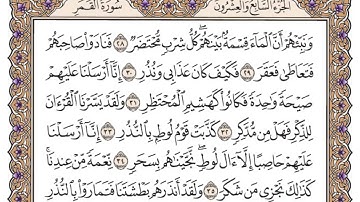 الجزء السابع والعشرون سورة القمر
وَنَبِّئْهُمْ أَنَّ ٱلْمَآءَ قِسْمَةٌۢ بَيْنَهُمْ ۖ كُلُّ شِرْبٍ مُّحْتَضَرٌ ٢٨ فَنَادَوْا۟ صَاحِبَهُمْ
فَتَعَاطَىٰ فَعَقَرَ ٢٩ فَكَيْفَ كَانَ عَذَابِى وَنُذُرِ ٣٠ إِنَّآ أَرْسَلْنَا عَلَيْهِمْ
صَيْحَةً وَٰحِدَةً فَكَانُوا۟ كَهَشِيمِ ٱلْمُحْتَظِرِ ٣١ وَلَقَدْ يَسَّرْنَا ٱلْقُرْءَانَ
لِلذِّكْرِ فَهَلْ مِن مُّدَّكِرٍ ٣٢ كَذَّبَتْ قَوْمُ لُوطٍۭ بِٱلنُّذُرِ ٣٣ إِنَّآ أَرْسَلْنَا
عَلَيْهِمْ حَاصِبًا إِلَّآ ءَالَ لُوطٍ ۖ نَّجَّيْنَٰهُم بِسَحَرٍ ٣٤ نِّعْمَةً مِّنْ عِندِنَا ۚ
كَذَٰلِكَ نَجْزِى مَن شَكَرَ ٣٥ وَلَقَدْ أَنذَرَهُم بَطْشَتَنَا فَتَمَارَوْا۟ بِٱلنُّذُرِ